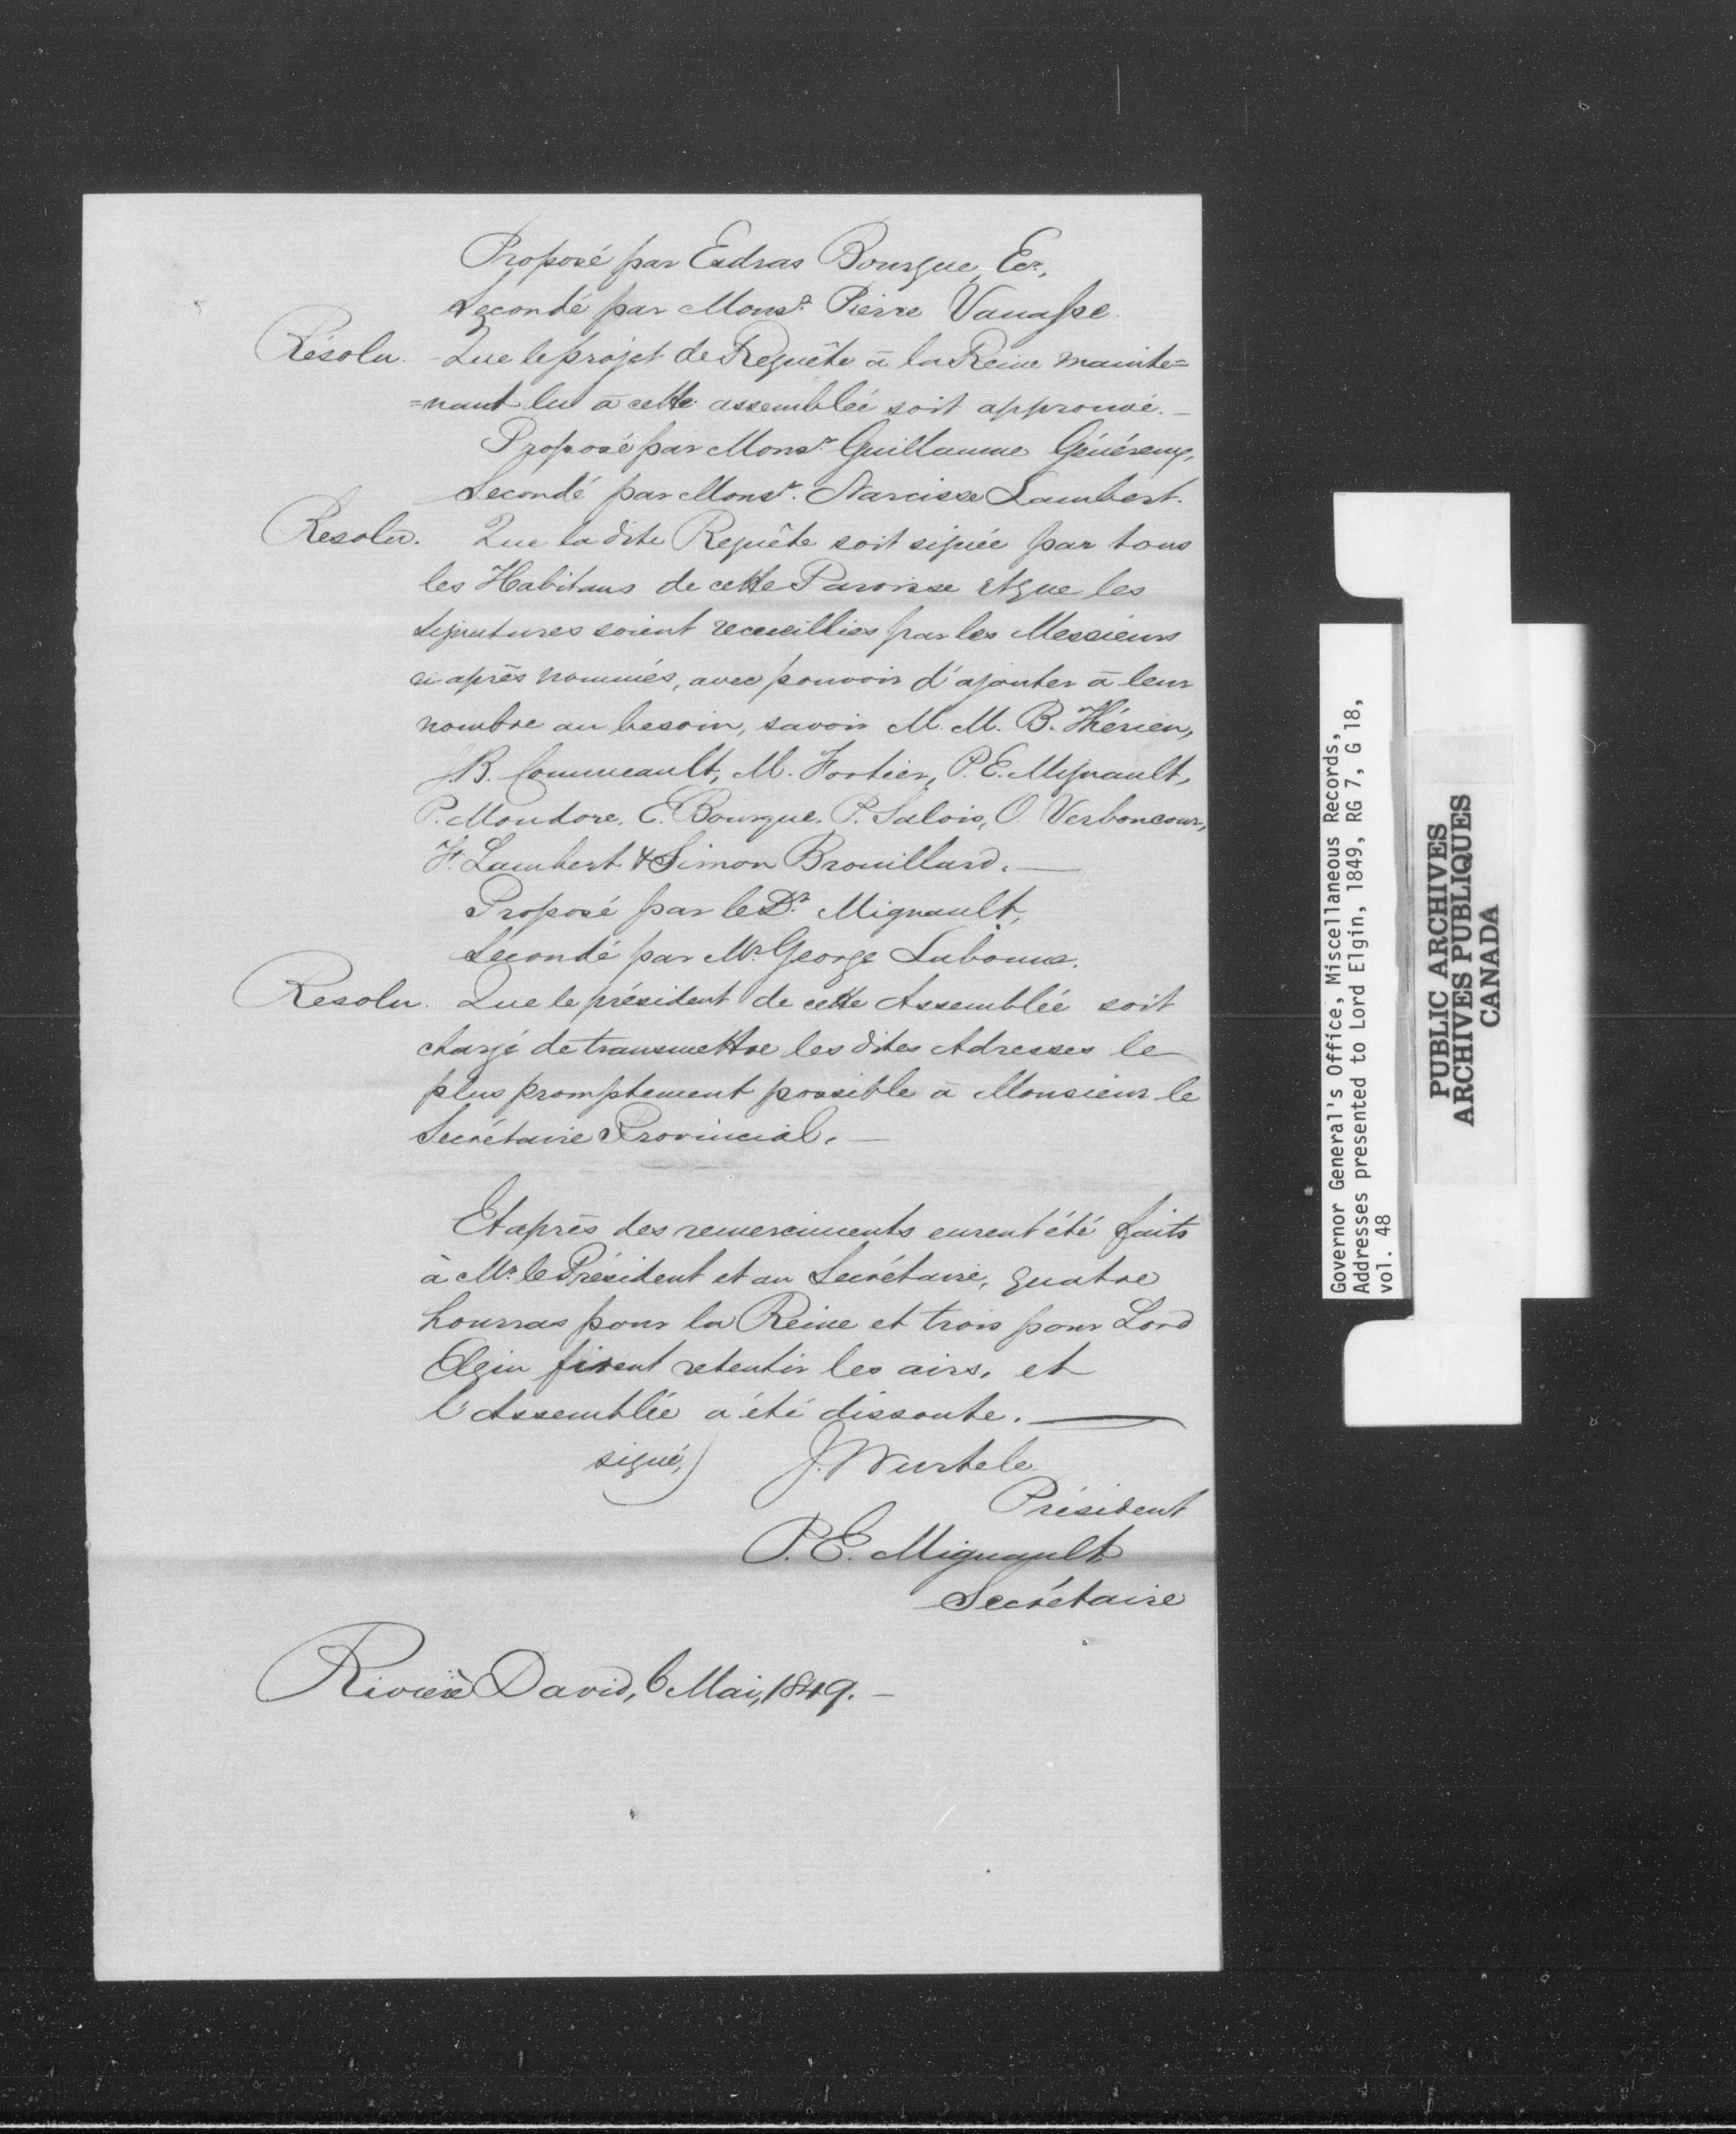 Proposé par Esdras Bourque, Ecr.,
Secondé par Monsr. Pierre Vanasse.
Résolu. - Que le projet de Requête à la Reine mainte=
=nant lu à cette assemblée soit approuvé. -
Proposé par Monsr. Guillaume Généreux,
Secondé par Monsr. Narcisse Lambert.
Resolu. Que la dite Requête soit signée par tous
les Habitans de cette Paroisse et que les
signatures soient receuillies par les Messieurs
ci-après nommés, avec pouvoir d'ajouter à leur
nombre au besoin, savoir M. M. B. Thérien,
J.B. Commeault, M. Fortier, P. E. Mignault,
P. Mondore, E. Bourque, P. Salois, O. Verboncour,
F. Lambert & Simon Brouillard. -
Proposé par le Dr. Mignault,
Secondé par Mr George Labonne.
Resolu. Que le président de cette Assemblée soit
chargé de transmettre les dites Adresses le
plus promptement possible à Monsieur le
Secrétaire Provincial. -
Et après des remerciments eurent été faits
à Mr. le Président et au Secrétaire, quatre
hourras pour la Reine et trois pour Lord
Elgin firent retentir les airs, et
l'Assemblée a été dissoute. -
signé,) J. Wurtele
Président
P. E. Mignault
Secrétaire
Rivière David, 6 Mai, 1849. -
Governor General's Office, Miscellaneous Records,
Addresses presented to Lord Elgin, 1849, RG 7, G 18,
vol. 48
PUBLIC ARCHIVES
ARCHIVES PUBLIQUES
CANADA